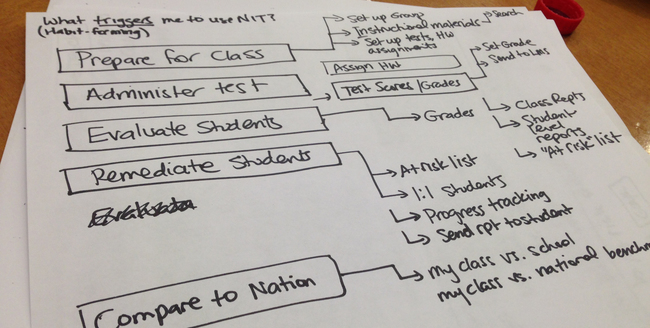 What triggers me to use NIT?
(Habit-forming)
Prepare for Class
Set up Group
Instructional materials
Search
Set up tests, HW
assignments
Assign HW
Administer test
Test Scores/Grades
Set Grade
Send to LMS
Evaluate Students
Grades
Class Repts
Student
level
reports
"At risk list
Remediate Students
At risk list
1:1 Students
Progress tracking
Send rpt to student
Compare to Nation
my class vs. school
my class vs. national benchm